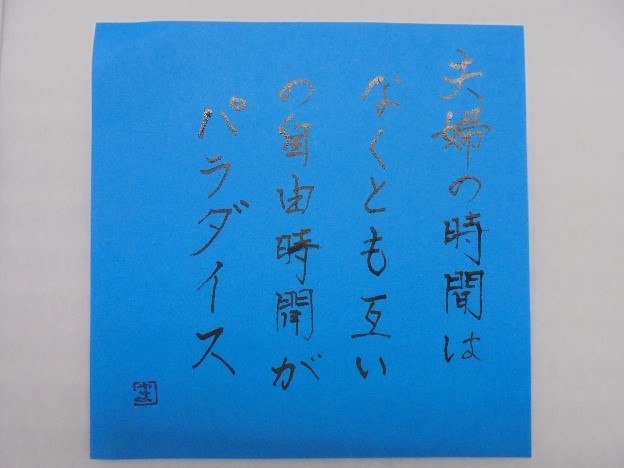 夫婦の時間は
なくとも互い
の自由時間が
パラダイス